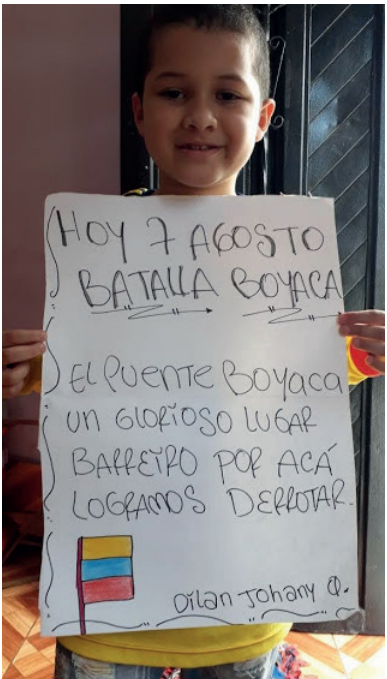 HOY 7 AGOSTO
BATALLA BOYACA
EL PUENTE BOYACA
UN GLORIOSO LUGAR
BARREIRO POR ACÁ
LOGRAMOS DERROTAR.
Dilan Johany Q.